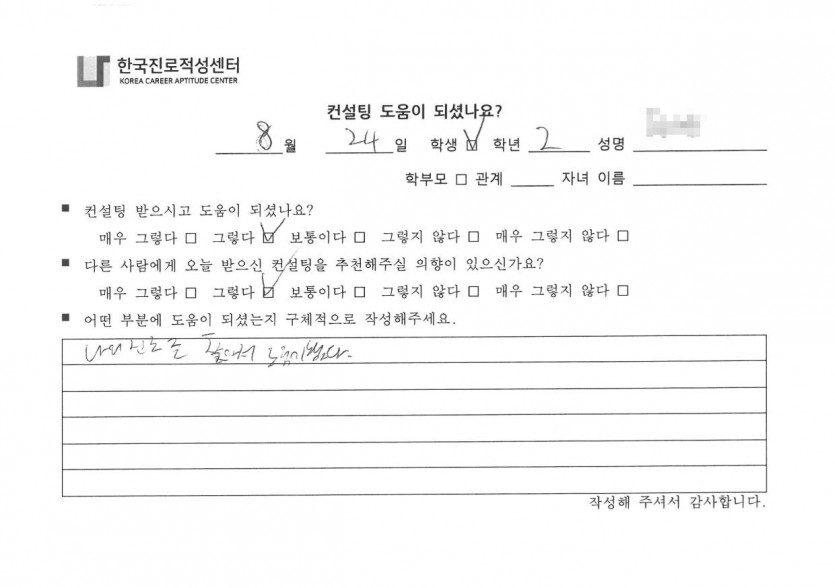 한국진로적성센터
KOREA CAREER APTITUDE CENTER
컨설팅 도움이 되셨나요?
8월 24일 학생 ☑ 학년 2 성명
학부모 □ 관계 자녀 이름
■ 컨설팅 받으시고 도움이 되셨나요?
매우 그렇다 □ 그렇다 ☑ 보통이다 □ 그렇지 않다 □ 매우 그렇지 않다 □
■ 다른 사람에게 오늘 받으신 컨설팅을 추천해주실 의향이 있으신가요?
매우 그렇다 □ 그렇다 ☑ 보통이다 □ 그렇지 않다 □ 매우 그렇지 않다 □
■ 어떤 부분에 도움이 되셨는지 구체적으로 작성해주세요.
나의 진로를 찾아서 도움이됐다.
작성해 주셔서 감사합니다.